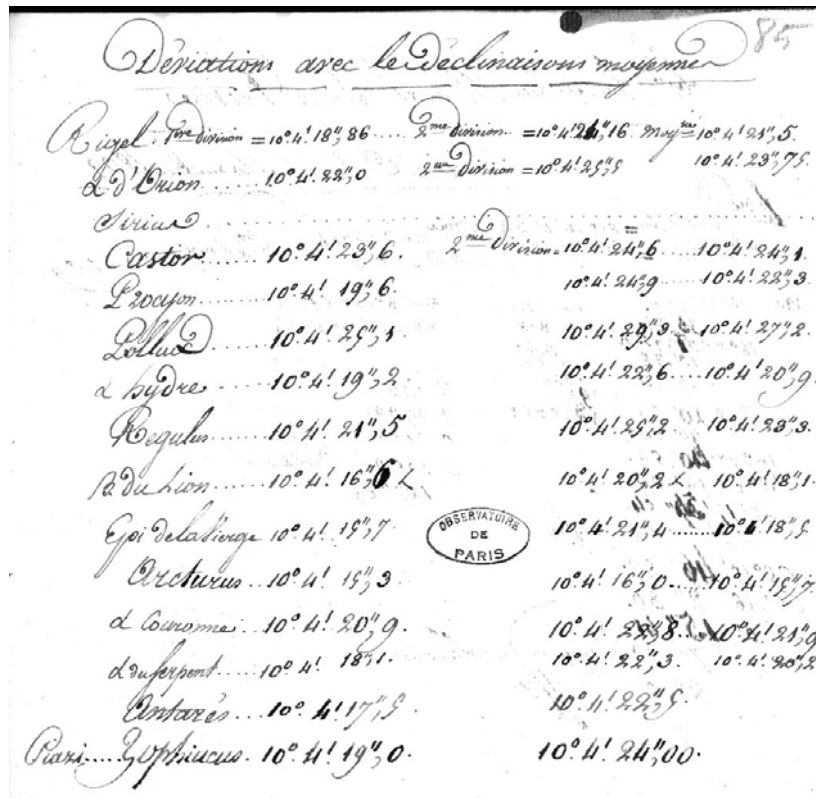 85
Déviations avec les Déclinaisons moyennes
Rigel. 1ère division = 10° 4' 18",86 .... 2me division = 10° 4' 24",16 moyne = 10° 4' 21",5.
α d'Orion ...... 10° 4' 22",0 2me division = 10° 4' 25",5 10° 4' 23",75
Sirius
Castor ...... 10° 4' 23",6. 2me division = 10° 4' 24",6 .... 10° 4' 24",1.
Procyon ...... 10° 4' 19",6. 10° 4' 24",9 .... 10° 4' 22",3
Pollux ...... 10° 4' 25",1 10° 4' 29",3 .... 10° 4' 27",2.
α hydre ...... 10° 4' 19",2 10° 4' 22",6 .... 10° 4' 20",9
Regulus ...... 10° 4' 21",5 10° 4' 25",2 10° 4' 23",3.
β du Lion ..... 10° 4' 16",6 < 10° 4' 20",2 < 10° 4' 18",1.
Epi de la Vierge 10° 4' 15",7 10° 4' 21",4 ...... 10° 4' 18",5
OBSERVATOIRE DE PARIS
Arcturus .. 10° 4' 15",3 10° 4' 16",0 .... 10° 4' 15",7
α Couronne .. 10° 4' 20",9. 10° 4' 22",8 .... 10° 4' 21",9
α du serpent ..... 10° 4' 18",1. 10° 4' 22",3. 10° 4' 20",2
Antarés ... 10° 4' 17",5 10° 4' 22",5.
Piazzi ..... ophiucus. 10° 4' 19",0. 10° 4' 24",00.